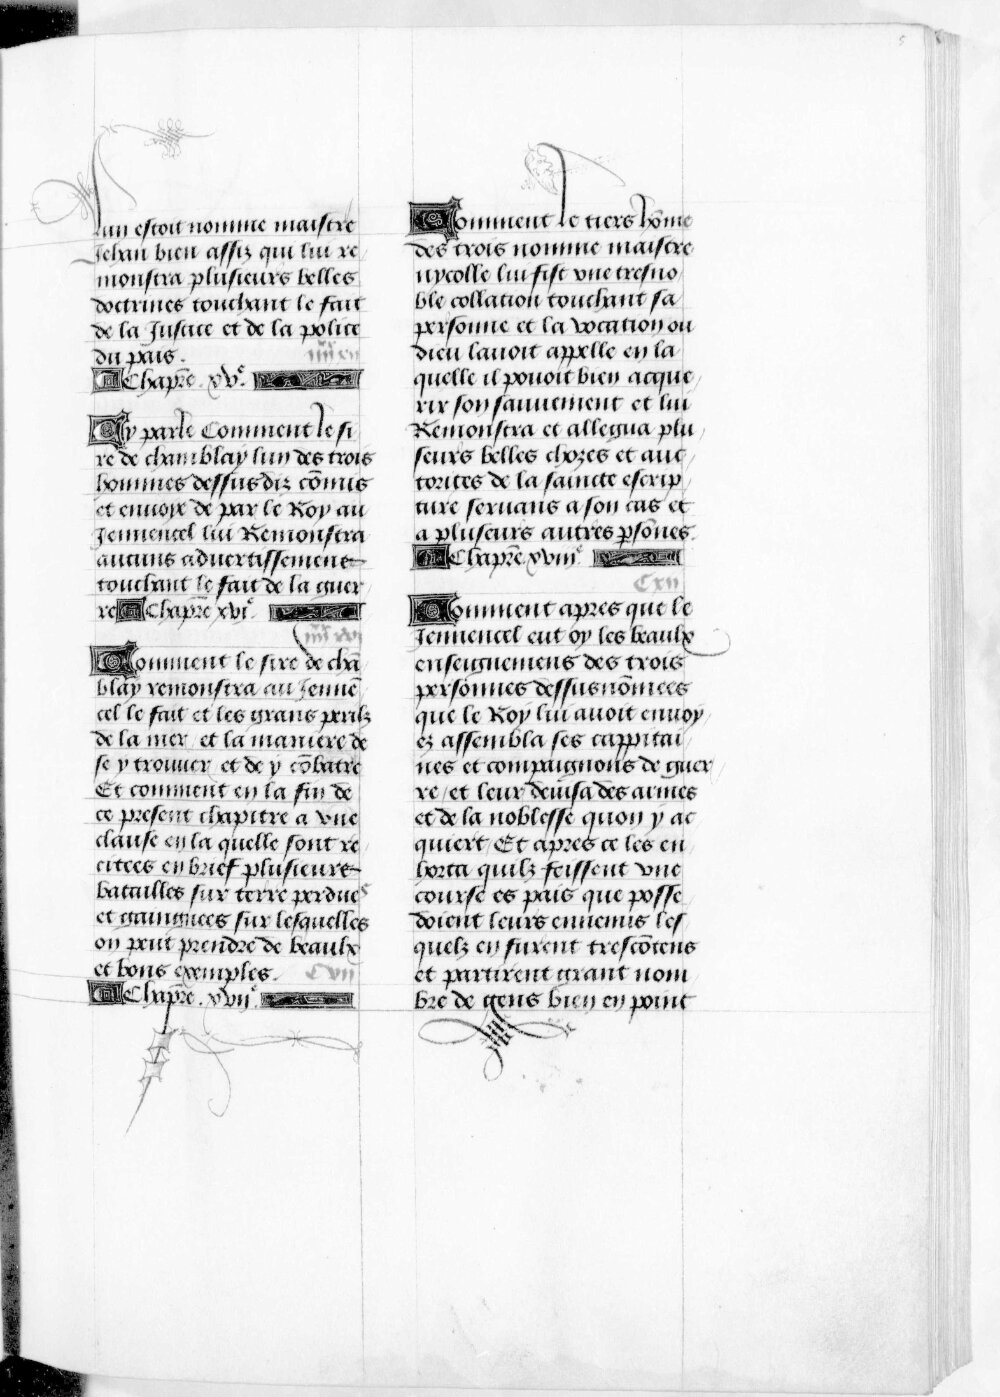 5
Lun estoit nomme maistre
Jehan bien assiz qui lui re
monstra plusieurs belles
doctrines touchant le fait
de la Justice et de la police
du pais.
Chapr̄e. xvͤ.
Cy parle Comment le si
re de chamblay lun des trois
hommes dessusdiz cōmis
et envoye de par le Roy au
Jennencel lui Remonstra
aucuns advertissemens
touchant le fait de la guer
re Chapr̄e xviͤ.
Comment le sire de chā
blay remonstra au Jennē
cel le fait et les grans perilz
de la mer / et la maniere de
se y trouver / et de y cōbatre
Et comment en la fin de
ce present chapitre a vne
clause en la quelle sont re
citees en brief plusieurs
batailles sur terre perdues
et gaingnees sur lesquelles
on peut prendre de beaulx
et bons exemples.
Chapr̄e. xviiͤ.
Comment le tiers hōme
des trois nomme maistre
nycolle lui fist vne tresno
ble collation touchant sa
personne et la vocation ou
dieu lavoit appelle en la
quelle il povoit bien acque
rir son sauvement et lui
Remonstra et allegua plu
seurs belles chozes et auc
torites de la saincte escrip
ture servans a son cas et
a pluseurs autres psōnes.
Chapr̄e xviiiͤ.
Comment apres que le
Jennencel eut oy les beaulx
enseignemens des trois
personnes dessusnōmees
que le Roy lui avoit envoy
ez assembla ses cappitai
nes et compaignons de guer
re / et leur devisa des armes
et de la noblesse quon y ac
quiert / Et apres ce les en
horta quilz feissent vne
course es pais que posse
doient leurs ennemis les
quelz en furent trescōtens
et partirent grant nom
bre de gens bien en point